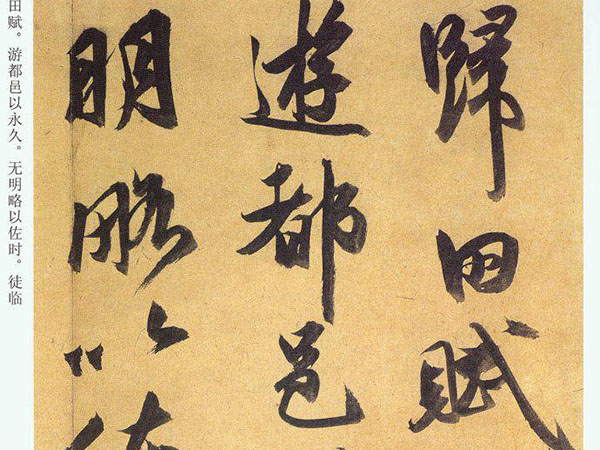 歸田賦
遊都邑
明略以佐
田赋。游都邑以永久。无明略以佐时。徒临